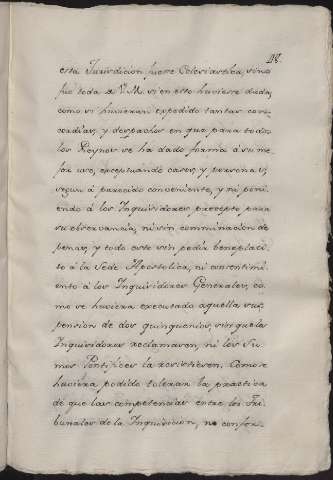 48.
esta Jurisdicion fuere Eclesiastica, sino
fué toda a V. M. si en esto huviere duda,
como se huvieran expedido tantas con-
cordias, y despachos en que para todos
los Reynos se ha dado forma á su me-
jor uso, exceptuando casos, y personas,
segun á parecido conveniente, y ni poni-
endo á los Inquisidores precepto para
su observancia, ni sin comminacion de
penas, y todo esto sin pedir beneplaci-
to á la Sede Apostolica, ni consentimi-
ento á los Inquisidores Generales, co-
mo se huviera executado aquella sus-
pension de dos quinquenios, sin que los
Inquisidores reclamaran, ni los Su-
mos Pontifices la resistiesen. Como se
huviera podido tolerar la practica
de que las competencias entre los Tri-
bunales de la Inquisicion, no confor-